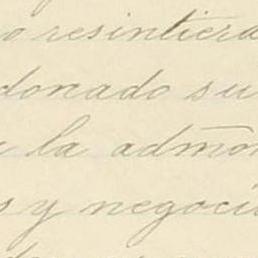 o resintiera
donado su
la admon
s y negocio